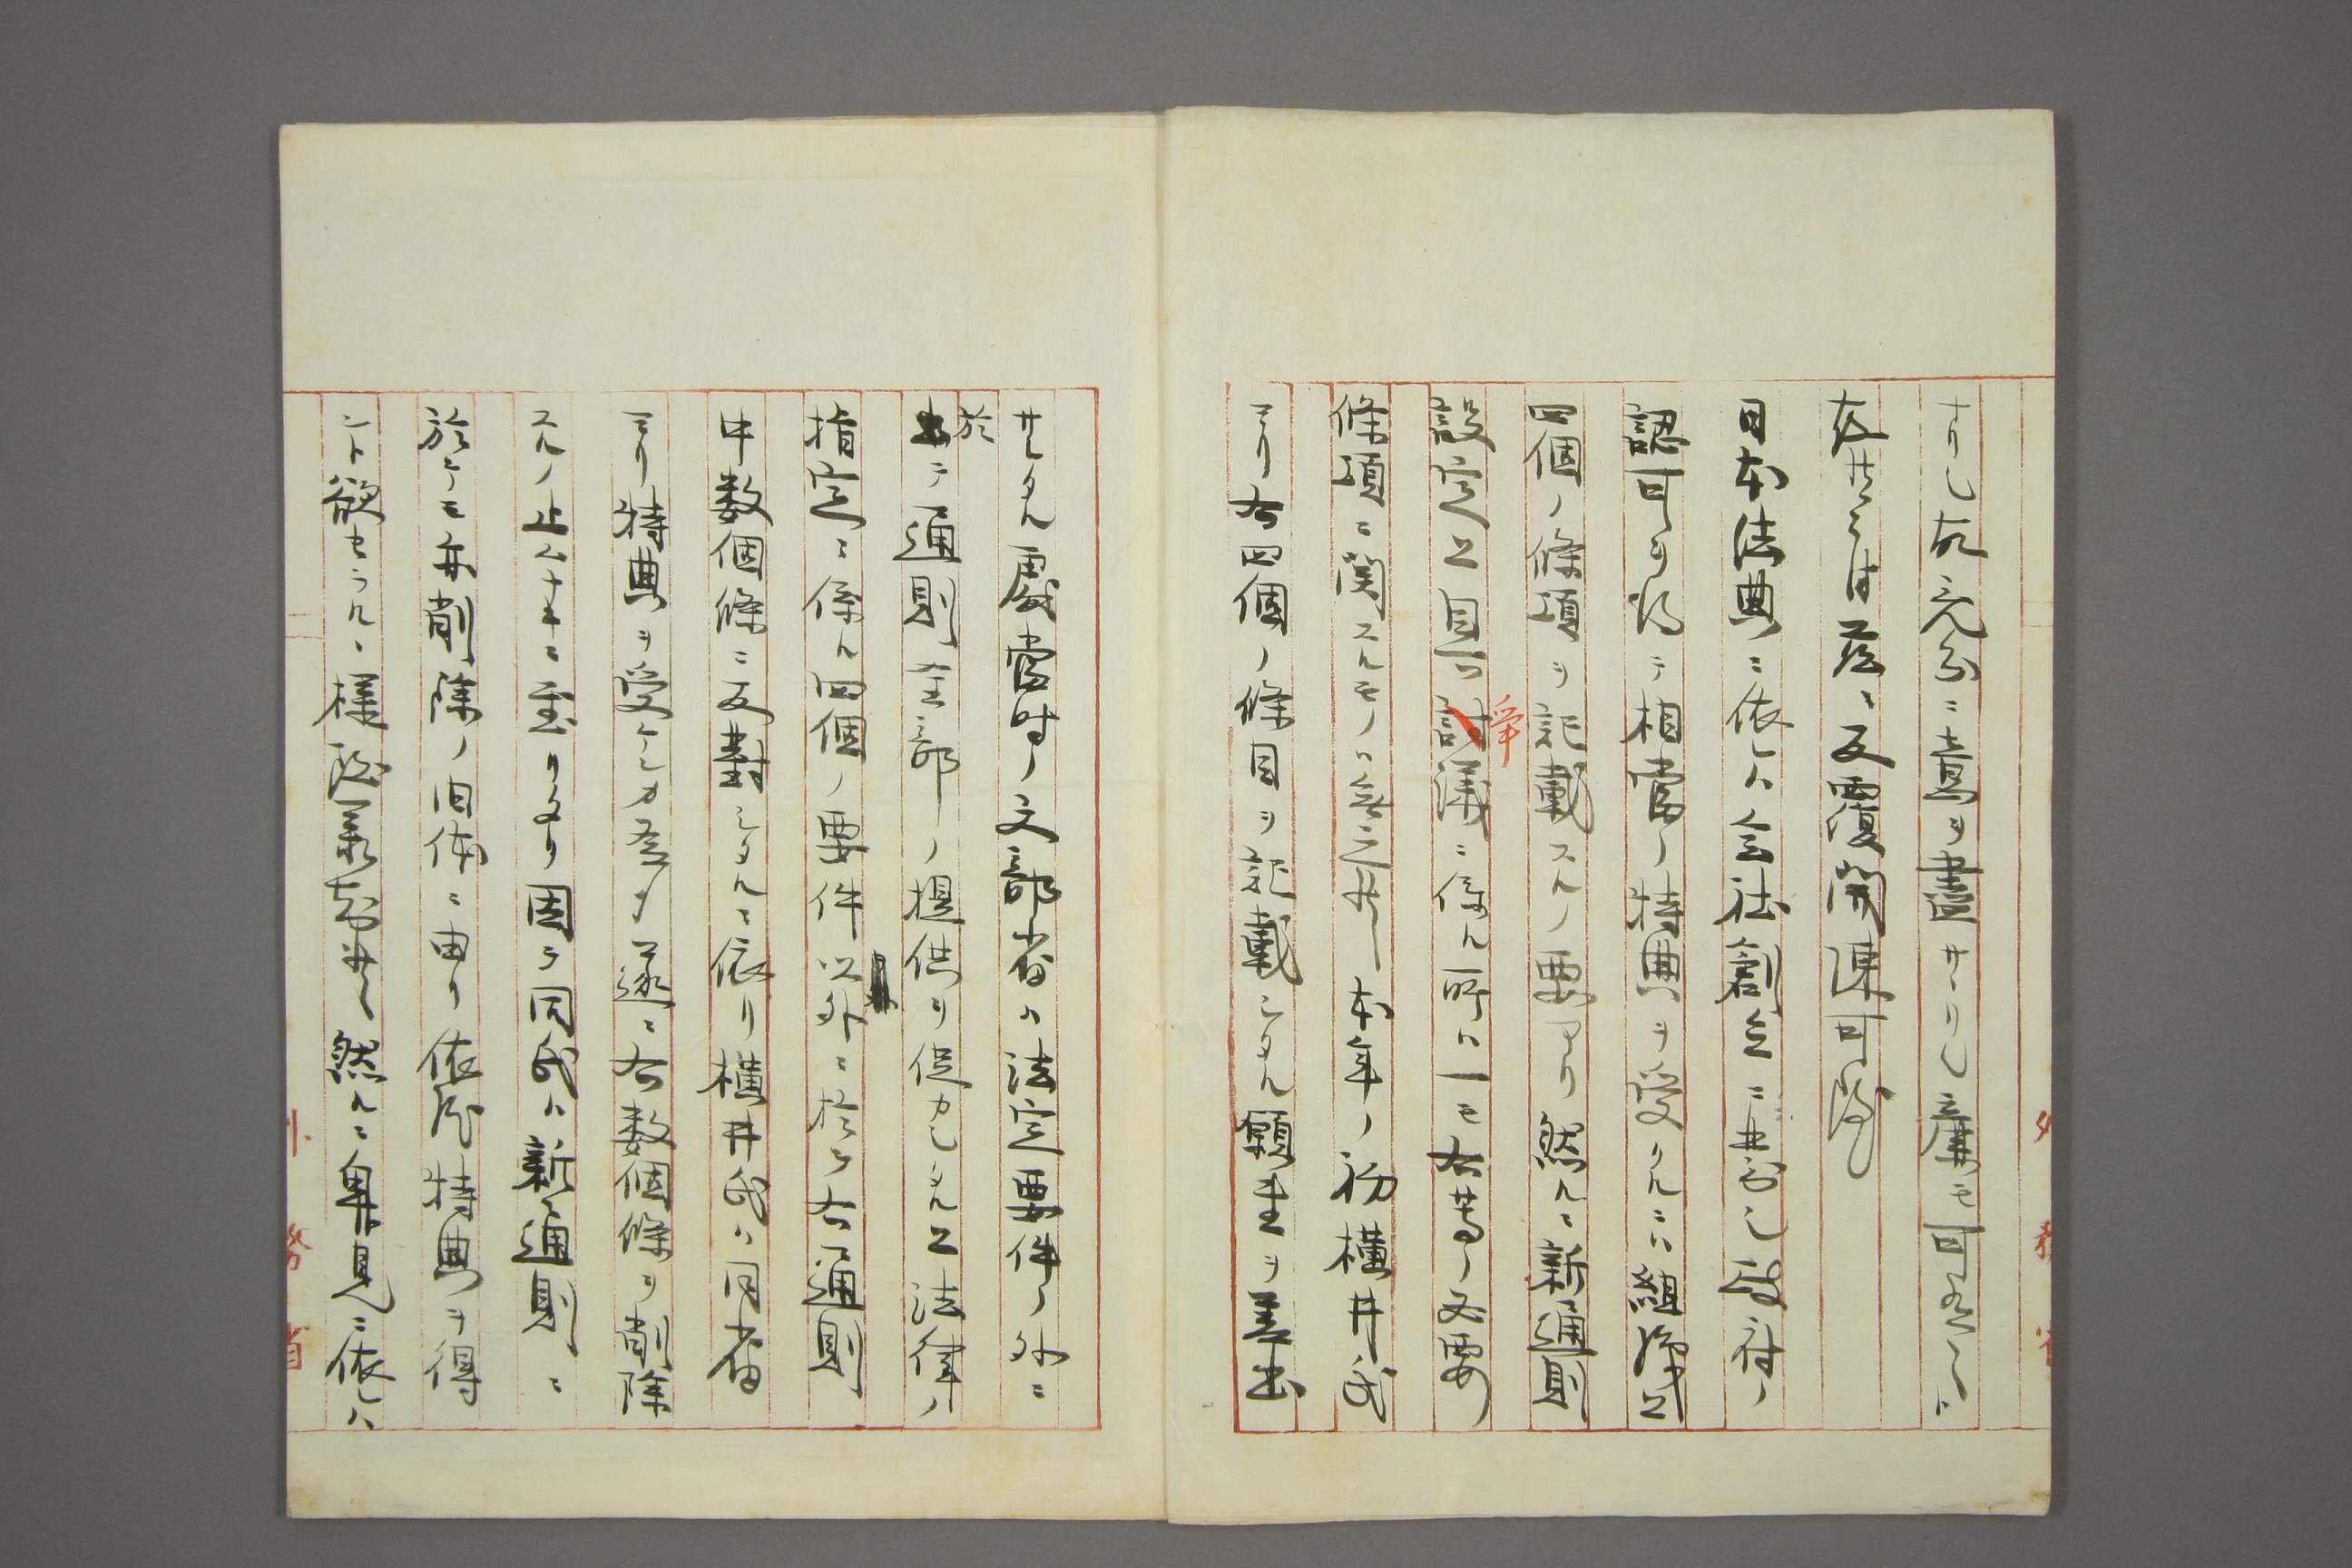 ナリシ故充分ニ意ヲ盡サヽリシ廉モ可有之ニ
有
日本法典ニ依レハ会社創立ニ
認可ヲ得テ相當ノ特典ヲ受クルニハ組織上
四個ノ條項ヲ記載スルノ要アリ然ルニ新通則
設定上目下爭議ニ係ル所ハ一モ右等ノ必要
條項ニ関スルモノハ無之候本年ノ初横井氏
ヨリ右四個ノ條目ヲ記載シタル願書ヲ差出
サレタル處當時ノ文部省ハ法定要件ノ外ニ
於テ通則全部ノ提供ヲ促カシタル上法律ノ
指定ニ係ル四個ノ要件以外ニ於テ右通則
中数個條ニ反對シタルニ依リ横井氏ハ同省
ヨリ特典ヲ受ケンカ為メ遂ニ右数個條ヲ削除
スルノ止ムナキニ至リタリ因テ同氏ハ新通則ニ
於テモ亦削除ノ個條ニ由リ依然特典ヲ得
ント欲セラルヽ様致承知候然ルニ卑見ニ依レハ
外務省
外務省